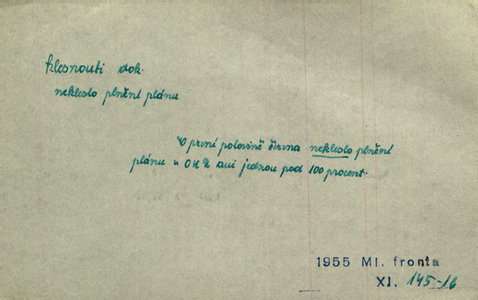 klesnouti dok.
nekleslo plnění plánu
V první polovině června nekleslo plnění
plánu v OKD ani jednou pod 100 procent.
1955 Ml. fronta
XI. 145-16